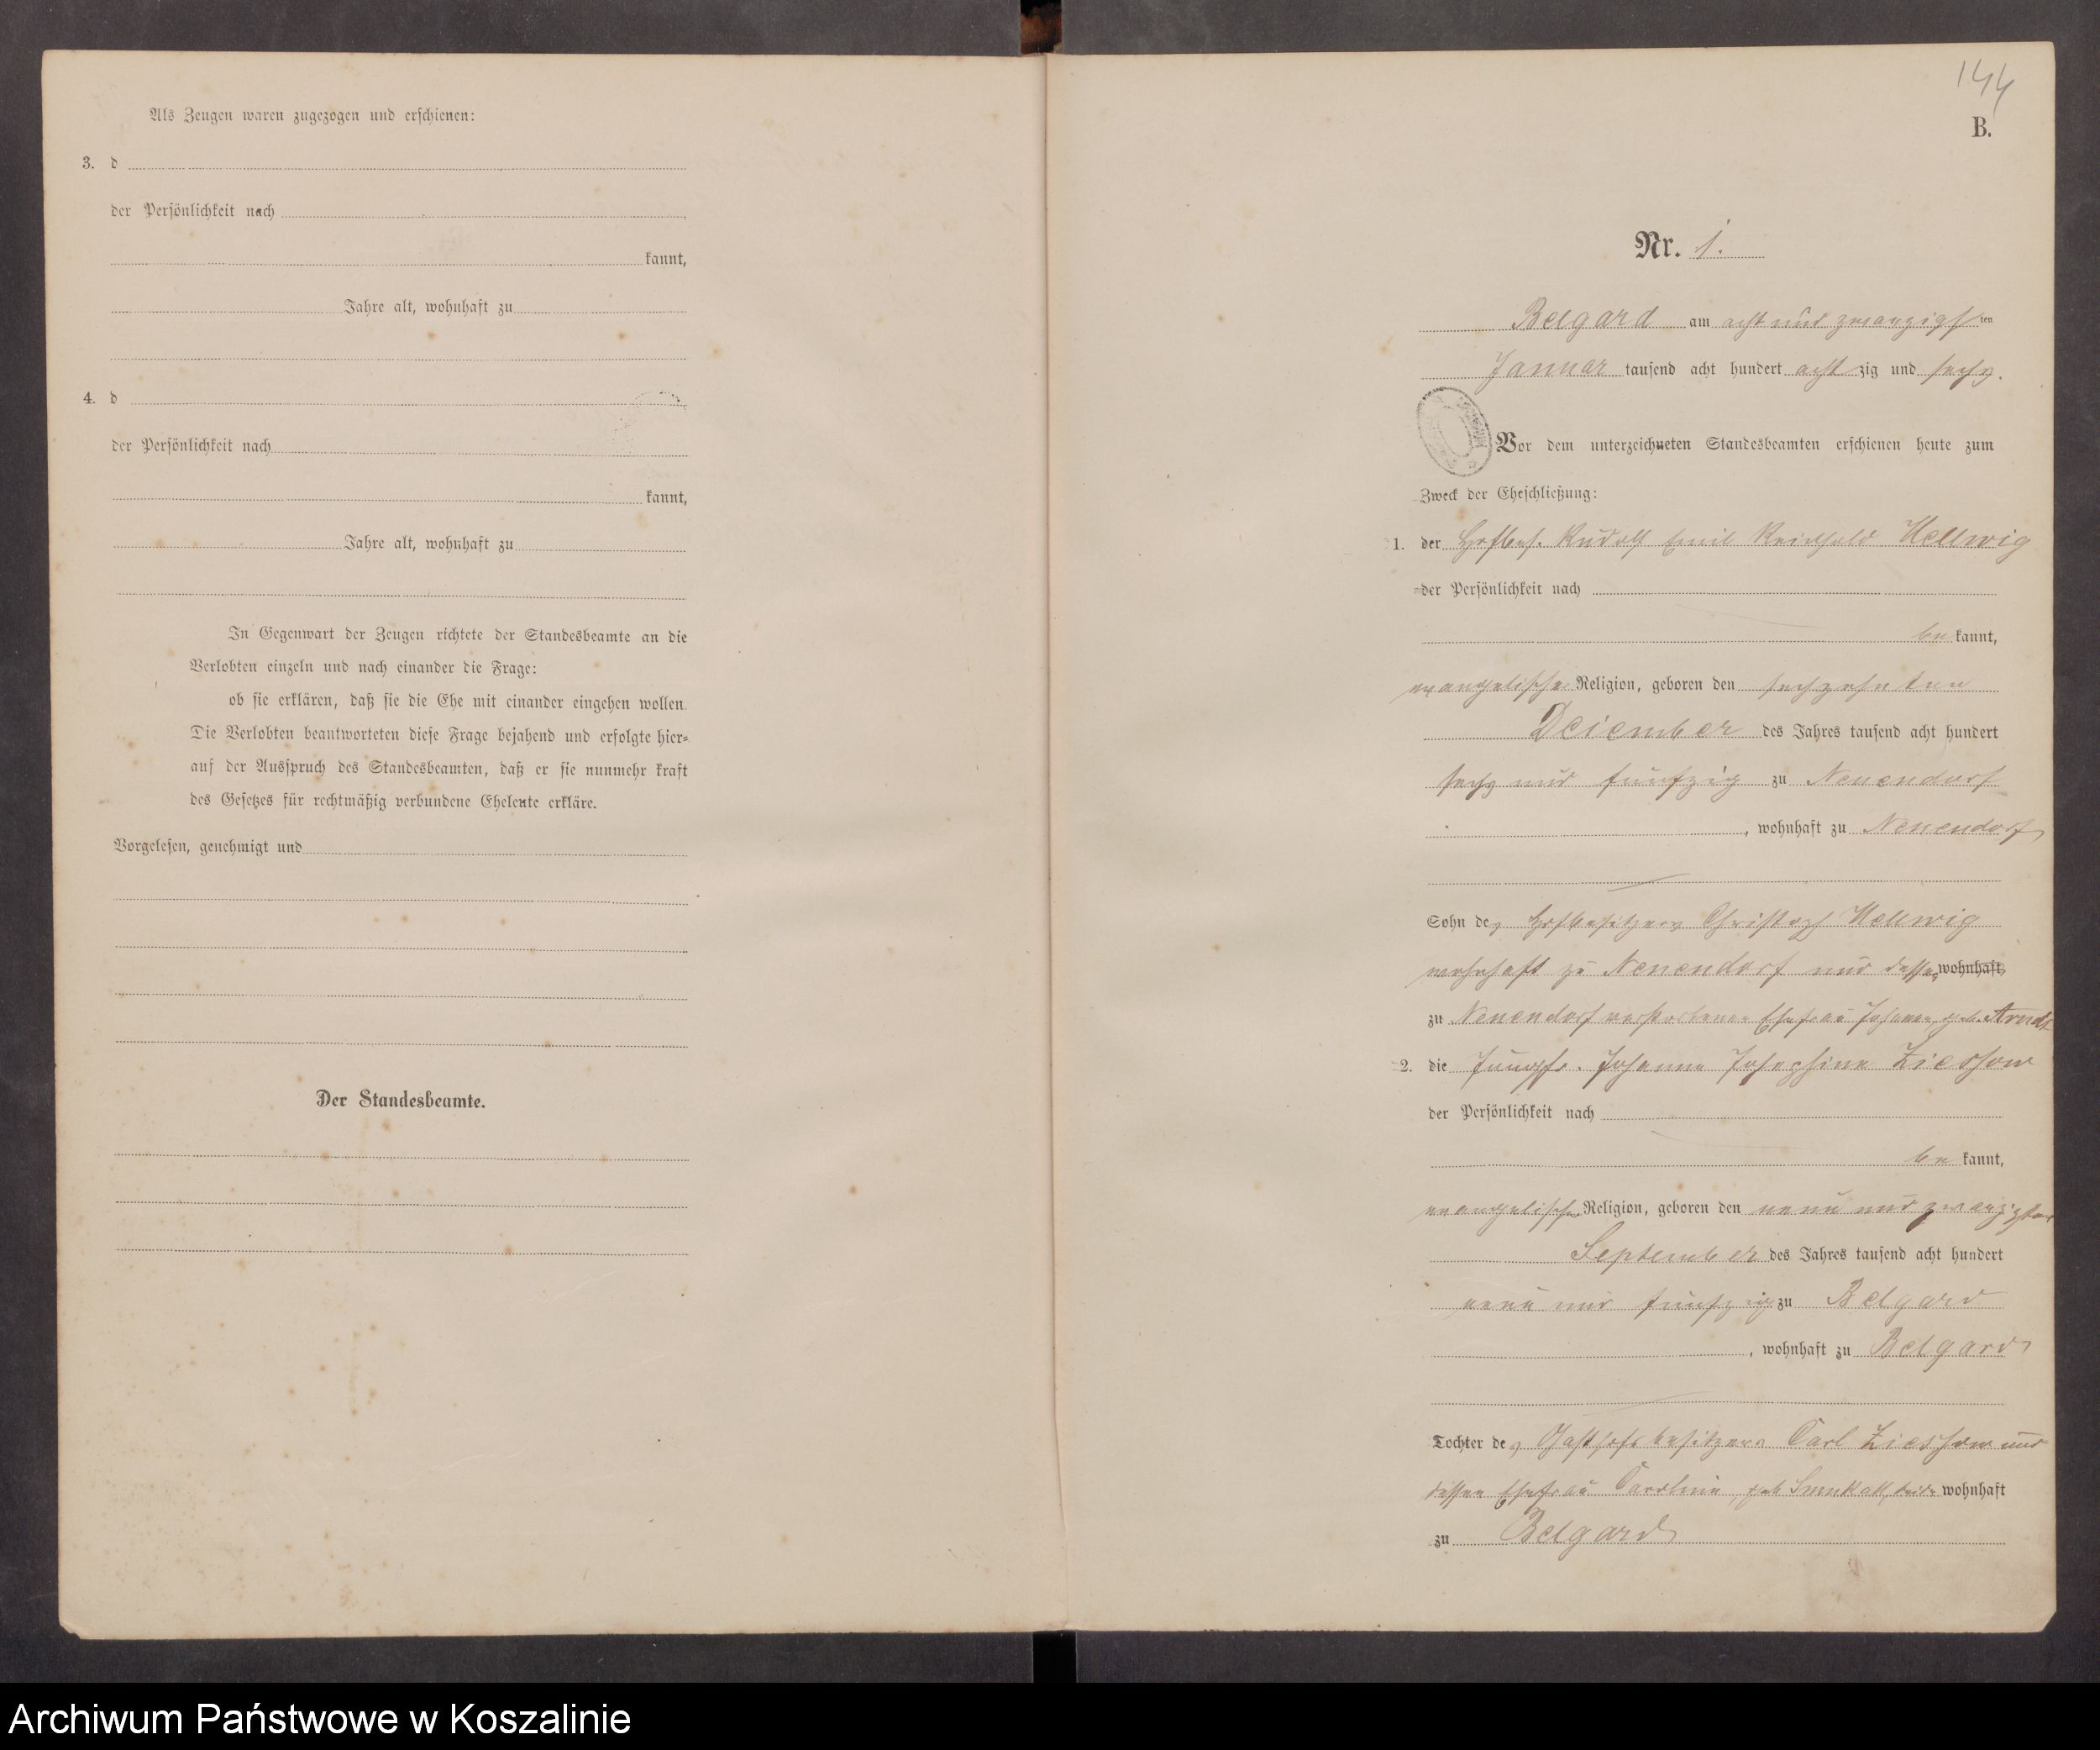 Als Zeugen waren zugezogen und erschienen:
3. d
der Persönlichkeit nach
kannt,
Jahre alt, wohnhaft zu
4. d
der Persönlichkeit nach
kannt,
Jahre alt, wohnhaft zu
In Gegenwart der Zeugen richtete der Standesbeamte an die
Verlobten einzeln und nach einander die Frage:
ob sie erklären, daß sie die Ehe mit einander eingehen wollen.
Die Verlobten beantworteten diese Frage bejahend und erfolgte hier-
auf der Ausspruch des Standesbeamten, daß er sie nunmehr kraft
des Gesetzes für rechtmäßig verbundene Eheleute erkläre.
Vorgelesen, genehmigt und
Der Standesbeamte.
144
B.
Nr. 1.
Belgard am acht und zwanzigsten
Januar tausend acht hundert achtzig und sechs.
Vor dem unterzeichneten Standesbeamten erschienen heute zum
Zweck der Eheschließung:
1. der Hofbes. Rudolf Emil Reinhold Hellwig
der Persönlichkeit nach
bekannt,
evangelischer Religion, geboren den sechzehnten
Dezember des Jahres tausend acht hundert
sechs und fünfzig zu Neuendorf
, wohnhaft zu Neuendorf
Sohn des Hofbesitzers Christoph Hellwig
wohnhaft zu Neuendorf und dessen wohnhaft
zu Neuendorf verstorbenen Ehefrau Johanna geb. Arndt
2. die Jungfr. Johanna Josephine Zieshow
der Persönlichkeit nach
bekannt,
evangelischer Religion, geboren den neun und zwanzigsten
September des Jahres tausend acht hundert
neun und fünfzig zu Belgard
, wohnhaft zu Belgard
Tochter des Gasthofsbesitzers Carl Zieshow und
dessen Ehefrau Caroline, geb. beide wohnhaft
zu Belgard
Archiwum Państwowe w Koszalinie